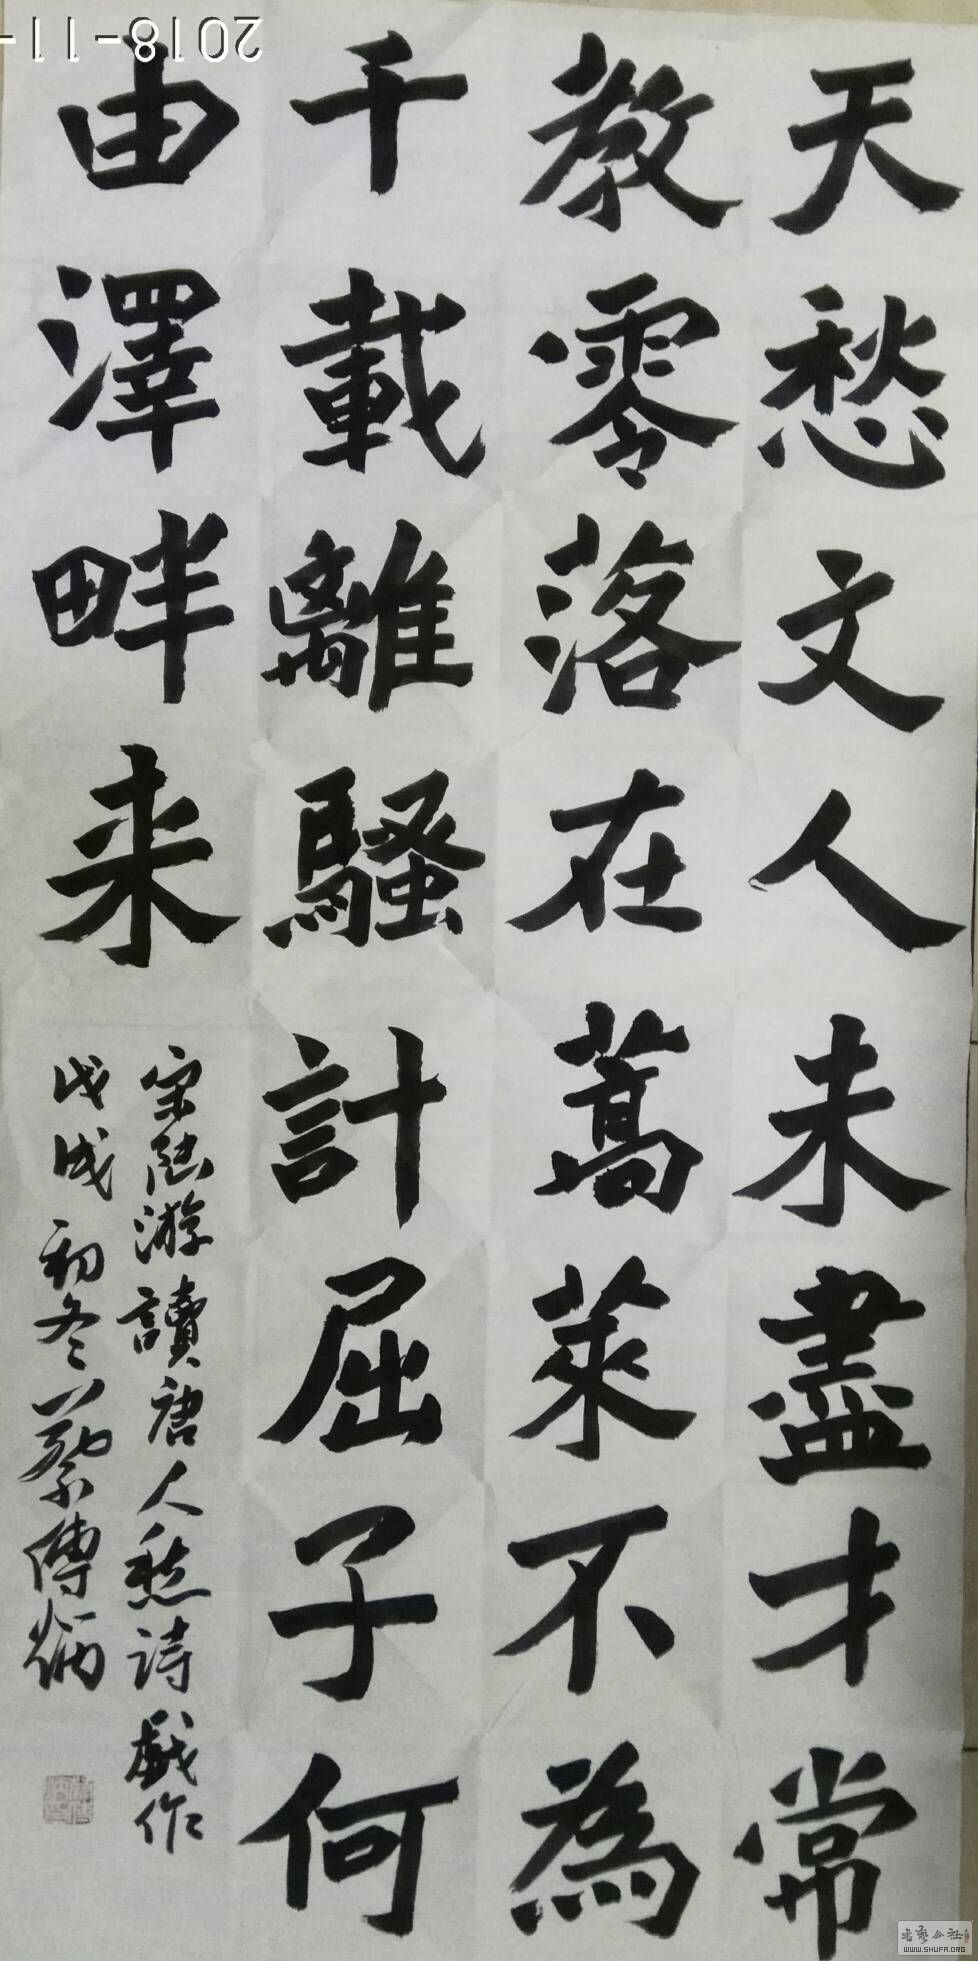 天愁文人未盡才常
教零落在蒿萊不為
千載離騷計屈子何
由澤畔来
宋陸游讀唐人愁诗戲作
戊戌初冬蔡傳炳
2018-11-
书艺公社
WWW.SHUFA.ORG